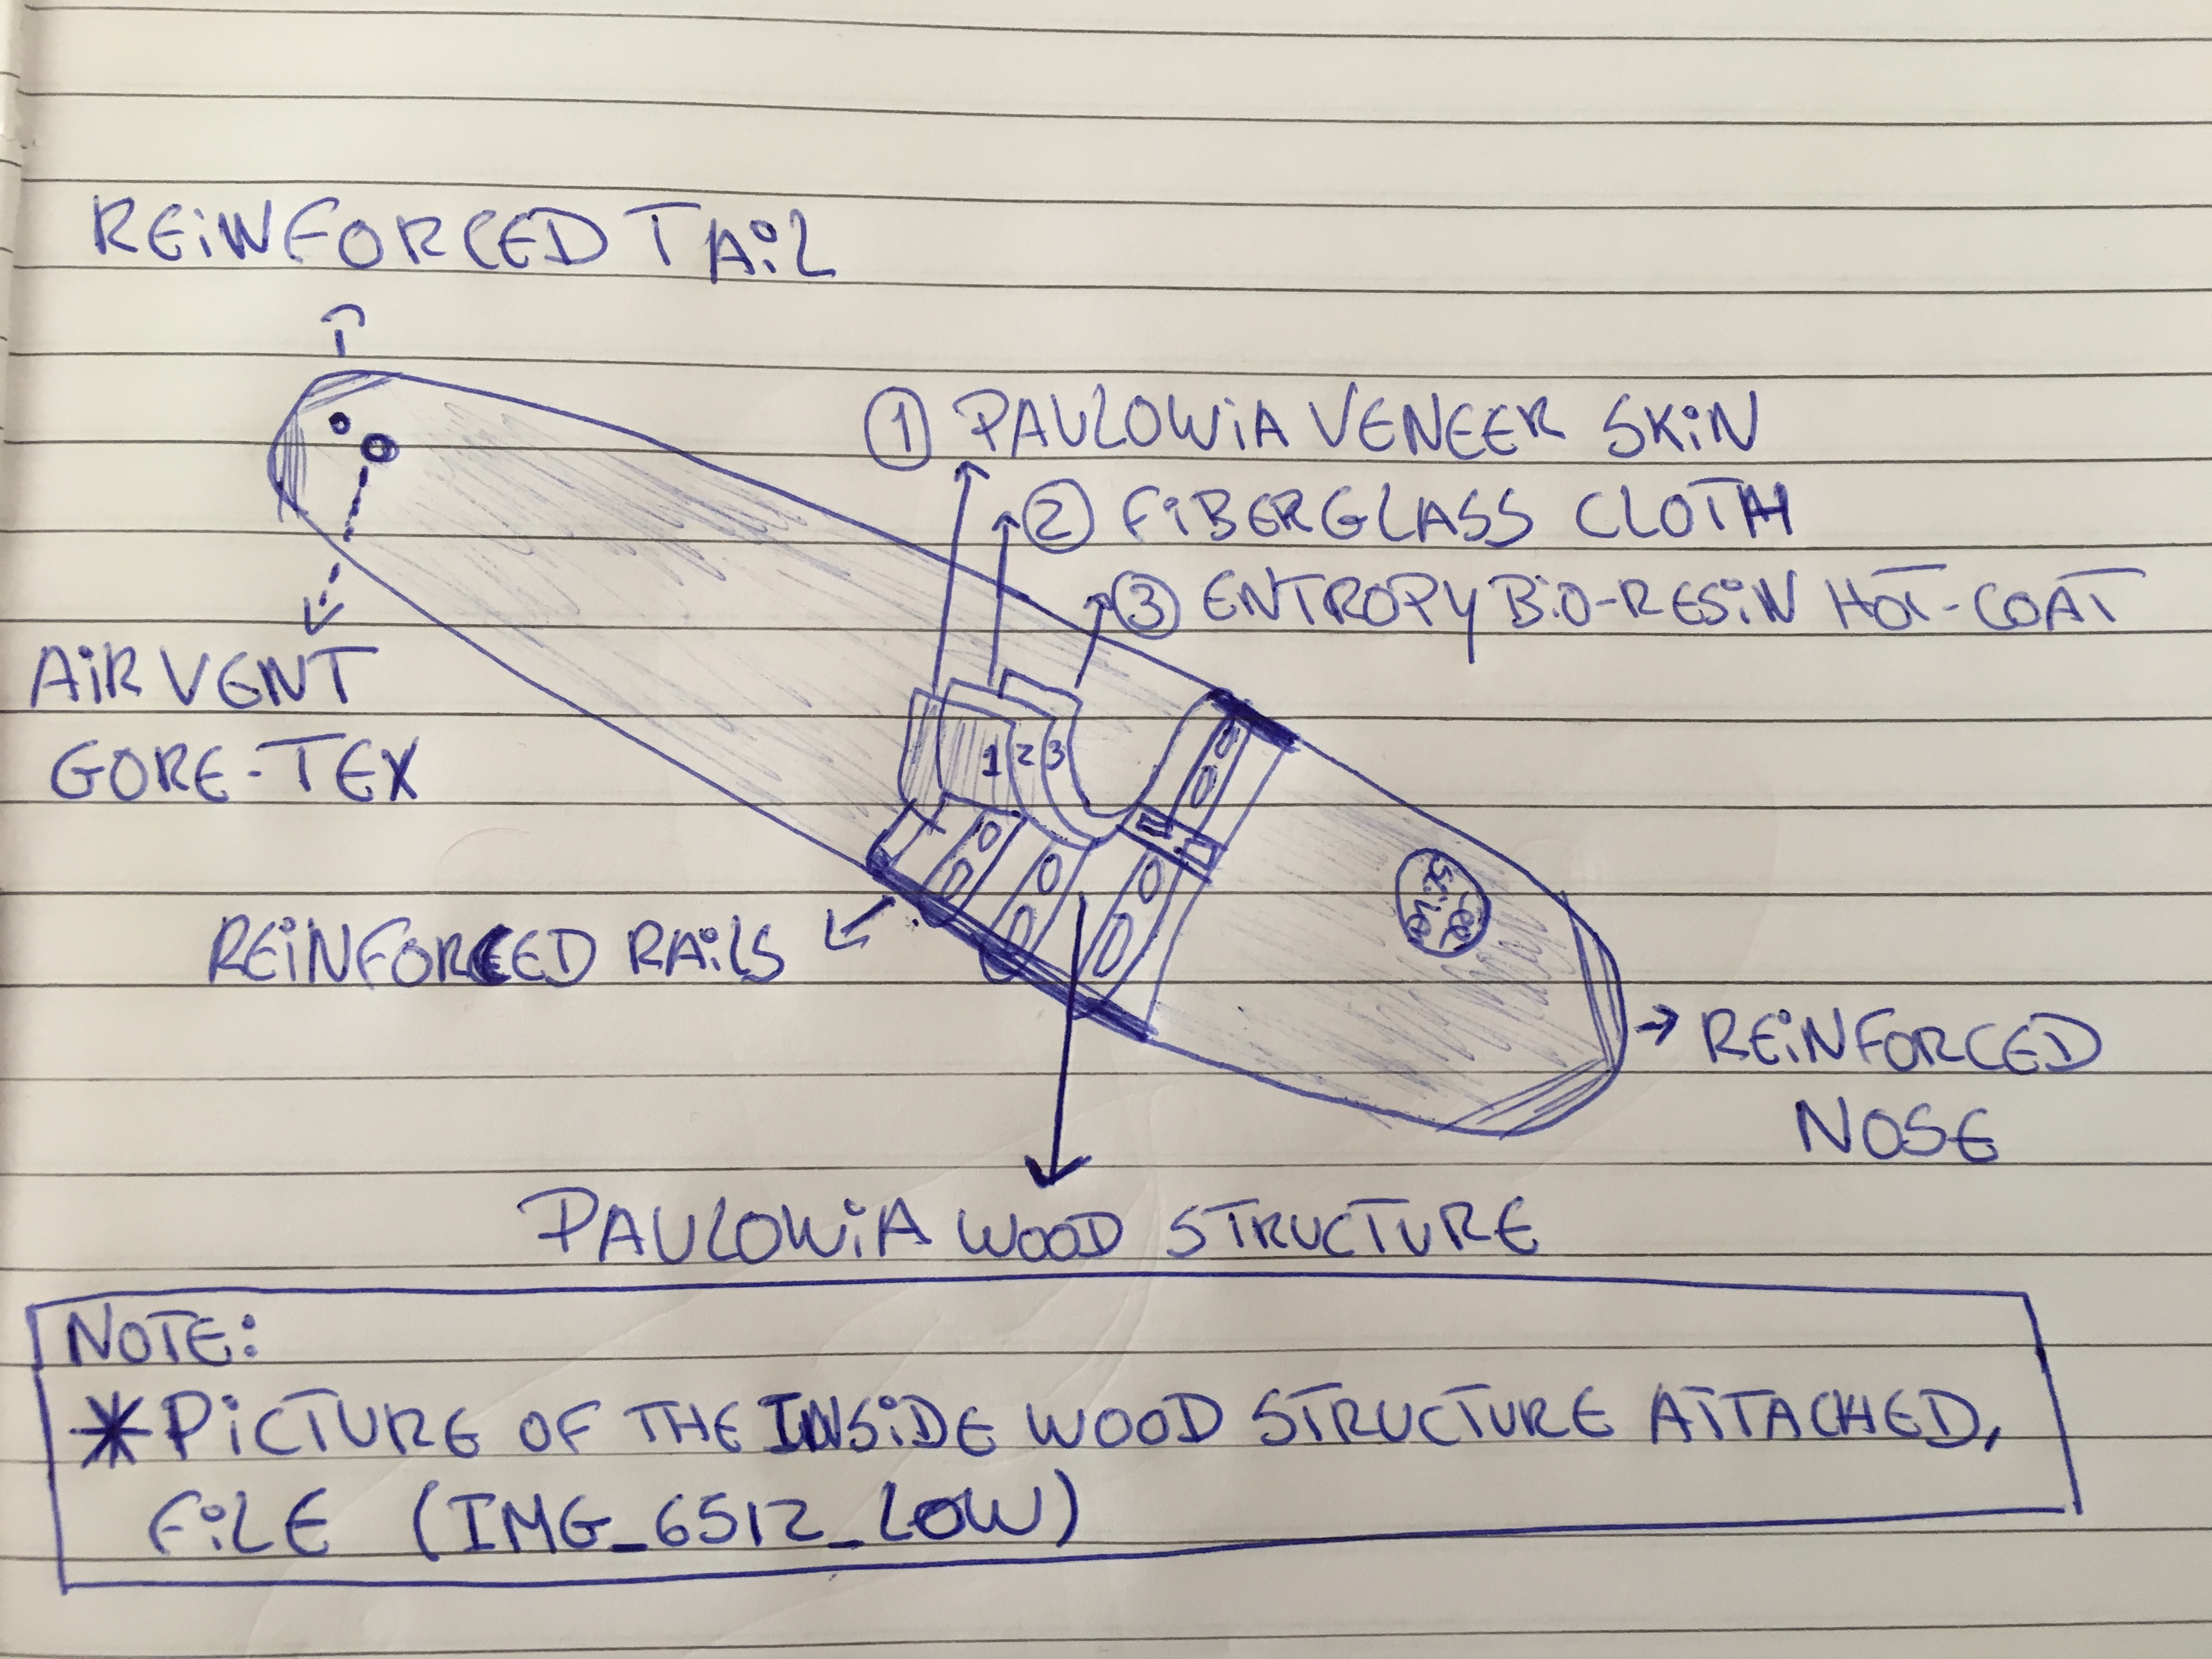 REINFORCED TAIL
① PAULOWIA VENEER SKIN
② FIBERGLASS CLOTH
③ ENTROPY BIO-RESIN HOT-COAT
AIR VENT
GORE-TEX
1 2 3
REINFORCED RAILS
REINFORCED
NOSE
PAULOWIA WOOD STRUCTURE
NOTE:
* PICTURE OF THE INSIDE WOOD STRUCTURE ATTACHED,
FILE (IMG_6512_LOW)